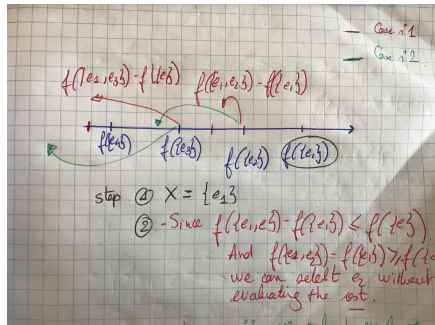 Case n°1
Case n°2
f({e1, e3}) - f({e}) f({e1, e2}) - f({e1})
f({e4}) f({e3}) f({e2}) f({e1})
step ① X = {e1}
② - Since f({e1, e}) - f({e1}) ≤ f({e})
And f({e1, e2}) - f({e1}) ≥ f({e
we can select e2 without
evaluating the rest.